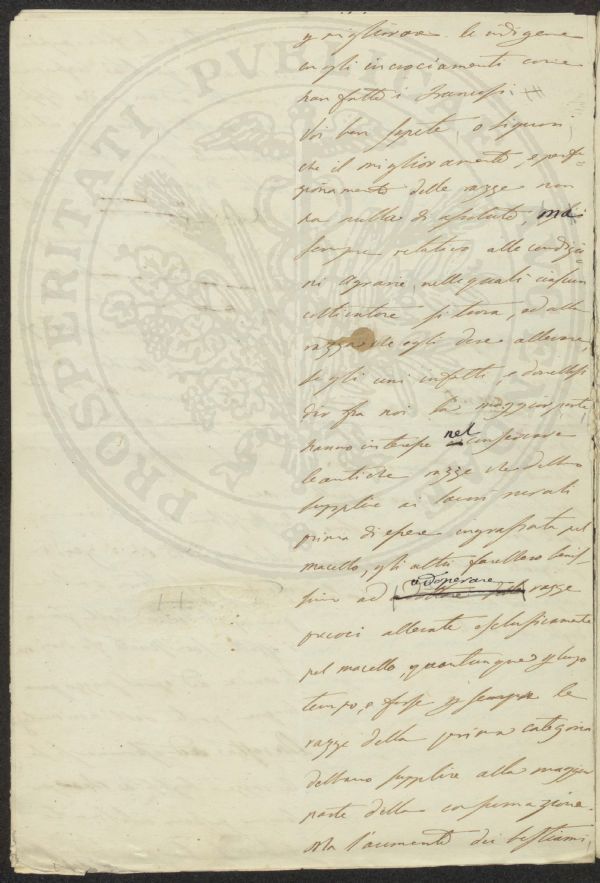 PROSPERITATI PVBLICAE
p migliorare le indigene
cogli incrociamenti come
han fatto i Francesi.
Voi ben sapete, o Signori,
che il miglioramento, e perfe-
zionamento delle razze non
ha nulla di assoluto, ma è
sempre relativo alle condizio-
ni Agrarie, nelle quali ciascun
coltivatore si trova, ed alla
razza che egli deve allevare,
se gli uni infatti, e
dir fra noi la maggior parte,
hanno interesse nel conservare
le antiche razze che debbono
supplire ai lavori rurali
prima di essere ingrassate pel
macello, gli altri farebbero benis-
simo ad adoperare razze
precoci allevate esclusivamente
pel macello, quantunque p lungo
tempo, e forse p sempre le
razze della prima categoria
debbano supplire alla maggior
parte della consumazione.
Ma l'aumento dei bestiami,